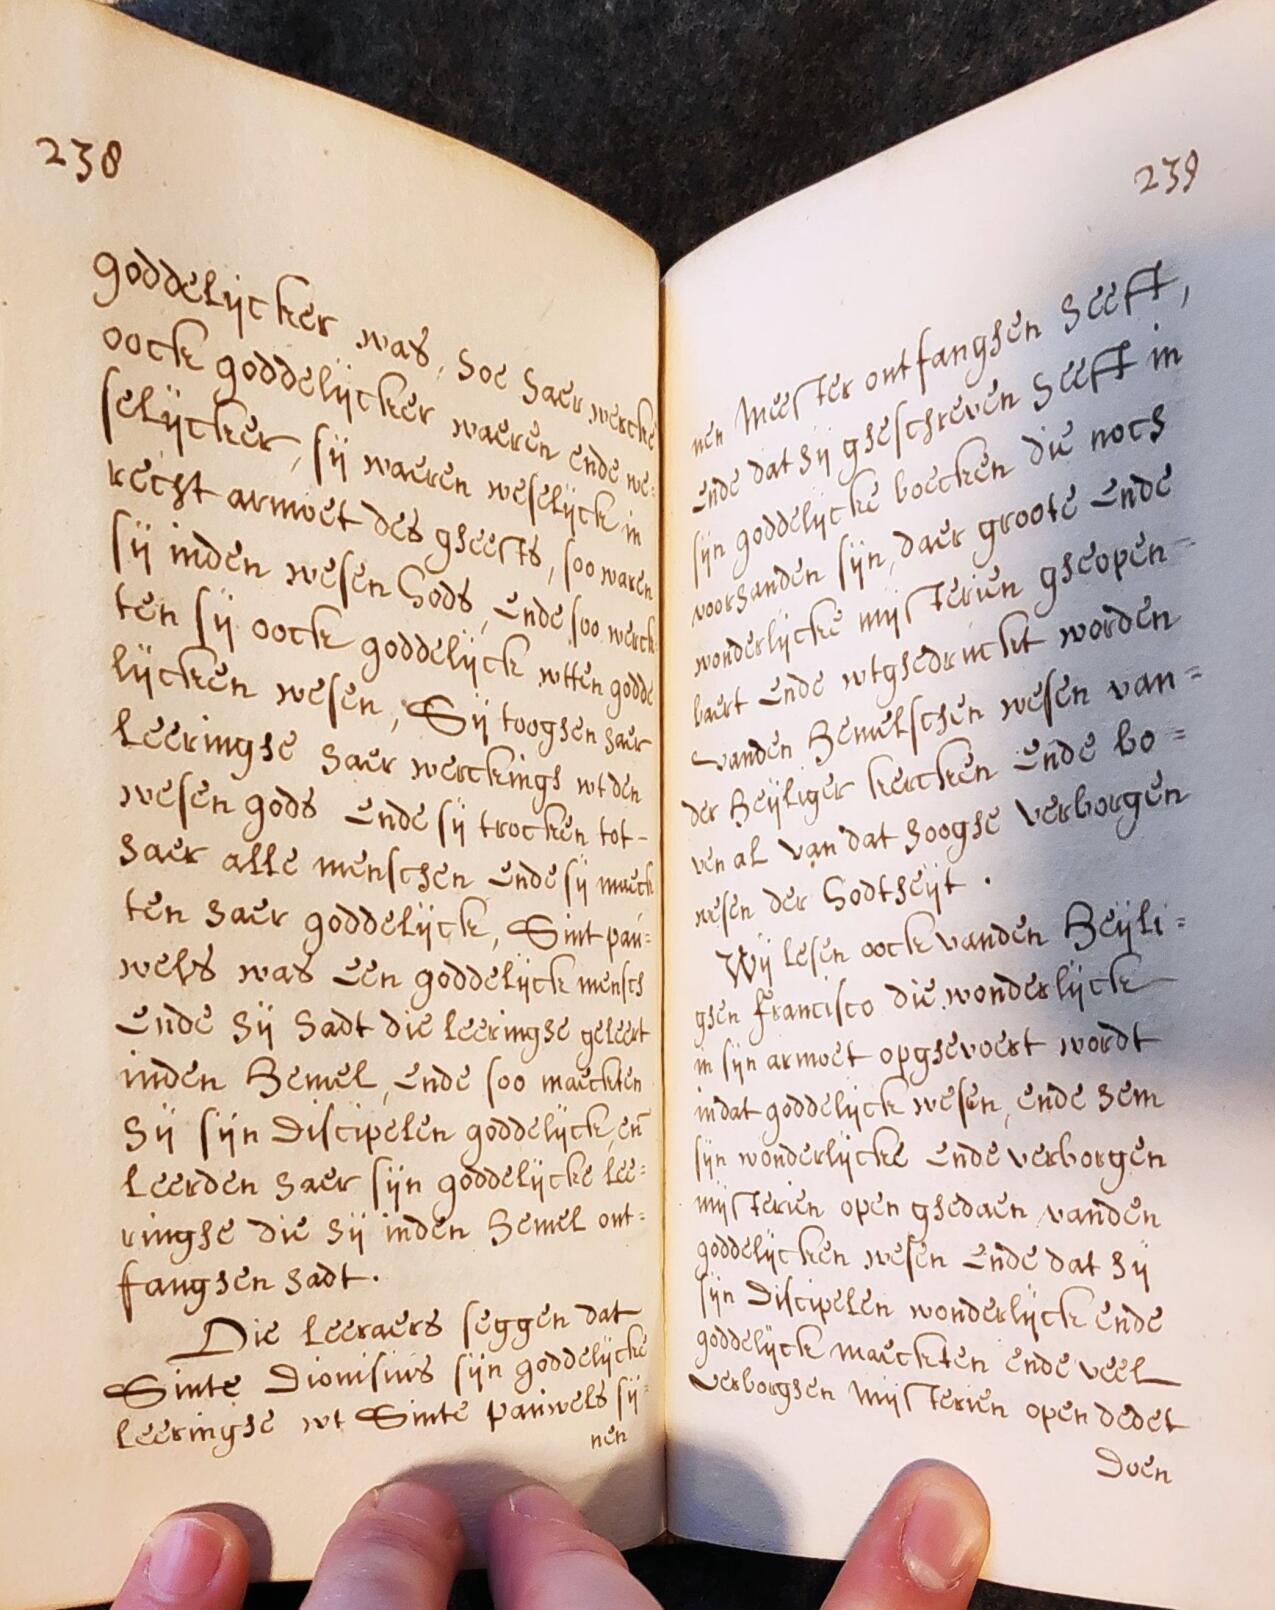 238
goddelijcker was, hoe haer wercke
oock goddelijcker waeren ende we=
selijcker, sij waeren weselijck in
recht armoet des gheests, soo waren
sij inden wesen Gods, ende soo werck
ten sij oock goddelijck wtten godde
lijcken wesen, Sij tooghen haer
leeringhe haer werckings wt den
wesen gods ende sij trocken tot-
haer alle menschen ende sij maeck
ten haer goddelijck, Sint pau=
wels was een goddelijck mensch
ende hij hadt die leeringhe geleert
inden hemel, ende soo maeckten
hij sijn discipelen goddelijck, en̄
leerden haer sijn goddelijcke lee=
ringhe die hij inden hemel ont=
fanghen hadt.
Die leeraers seggen dat
Sinte Dionisius sijn goddelijcke
leeringhe wt Sinte pauwels sij=
nen
239
nen Meester ontfanghen heeft,
ende dat hij gheschreven heeft in
sijn goddelijcke boecken die noch
voorhanden sijn, daer groote ende
wonderlijcke mijsterien gheopen=
baert ende wtghedruckt worden
vanden hemelschen wesen van=
der heijliger kercken ende bo=
ven al van dat hooghe verborgen
wesen der Godtheijt.
Wij lesen oock vanden heijli=
ghen francisco die wonderlijck
in sijn armoet opghevoert wordt
in dat goddelijck wesen, ende hem
sijn wonderlijcke ende verborgen
mijsterien open ghedaen vanden
goddelijcken wesen ende dat hij
sijn discipelen wonderlijck ende
goddelijck maeckten ende veel
verborghen mijsterien open dedet
doen